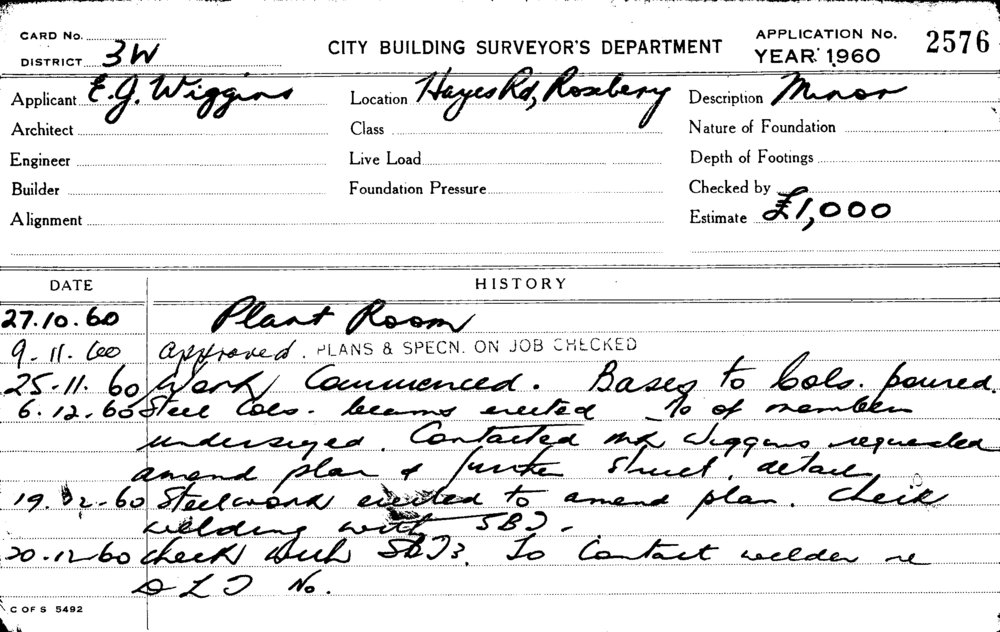 CARD No.
DISTRICT 3W
CITY BUILDING SURVEYOR'S DEPARTMENT
APPLICATION No. 2576
YEAR 1960
Applicant E.J. Wiggins
Location Hayes Rd, Rosebery
Description Minor
Architect
Class
Nature of Foundation
Engineer
Live Load
Depth of Footings
Builder
Foundation Pressure
Checked by
Alignment
Estimate £1,000
DATE HISTORY
27.10.60 Plant Room
9.11.60 approved. PLANS & SPECN. ON JOB CHECKED
25.11.60 Work Commenced. Bases to Cols. poured.
6.12.60 Steel Cols. beams erected of members
undersized. Contacted Mr Wiggins requested
amend plan & further struct. detail
19.12.60 Steelwork erected to amend plan. Check
welding with SBI.
20.12.60 check with SBI. To Contact welder re
DLI No.
C OF S 5492